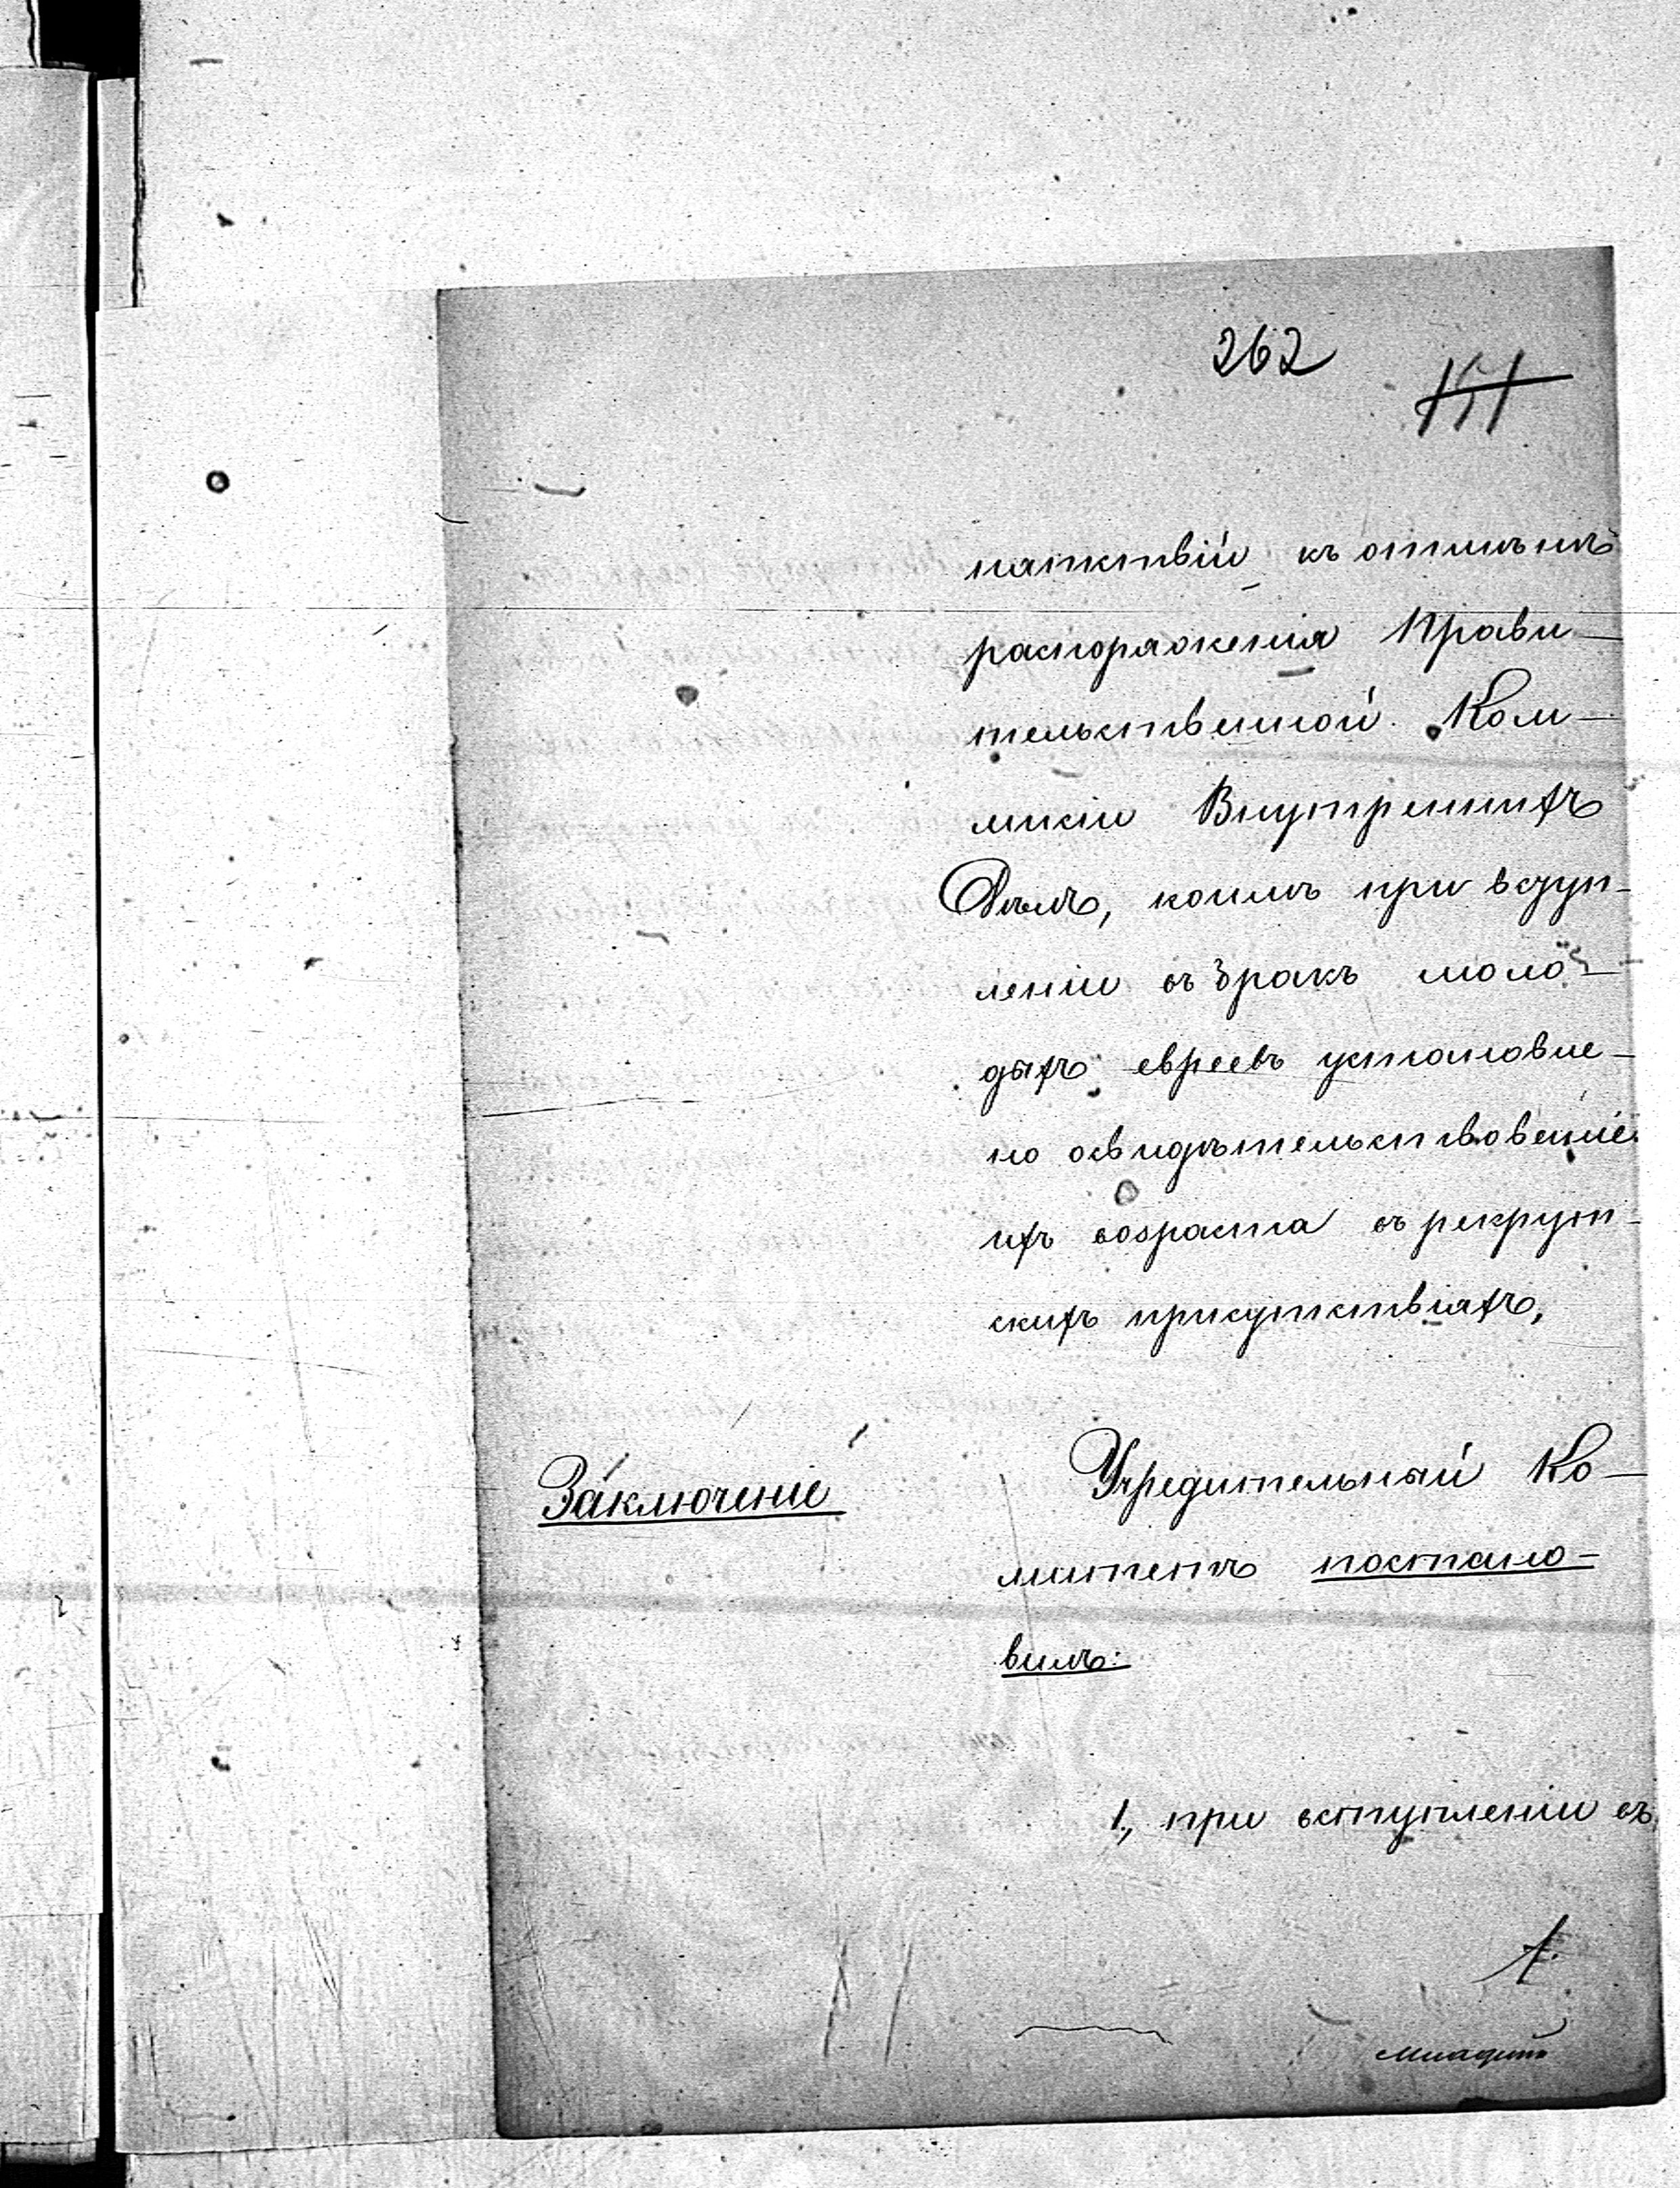 262
151
пятствій къ отмѣнѣ
распоряженія Прави-
тельственной Ком-
мисіи Внутреннихъ
Дѣлъ, коимъ при вступ-
леніи въ бракъ моло-
дыхъ евреевъ установле-
но освидѣтельствованіе
ихъ возраста въ рекрут-
скихъ присутствіяхъ,
Заключеніе
Учредительный Ко-
митетъ постано-
вилъ:
1, при вступленіи въ